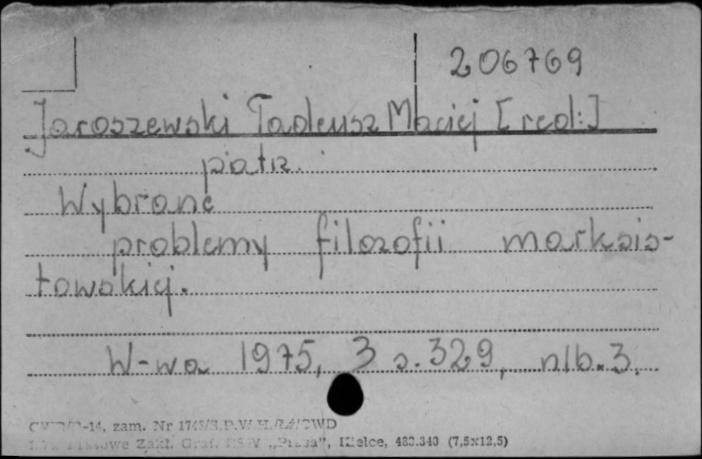 206769
Jaroszewski Tadeusz Maciej [red:]
patrz.
Wybrane
problemy filozofii marksis-
towskiej.
W-wa 1975, 3 s. 329, nlb. 3.
-14, zam. Nr
Zakł. Graf. „Prasa”, Kielce, 483.340 (7,5x12,5)